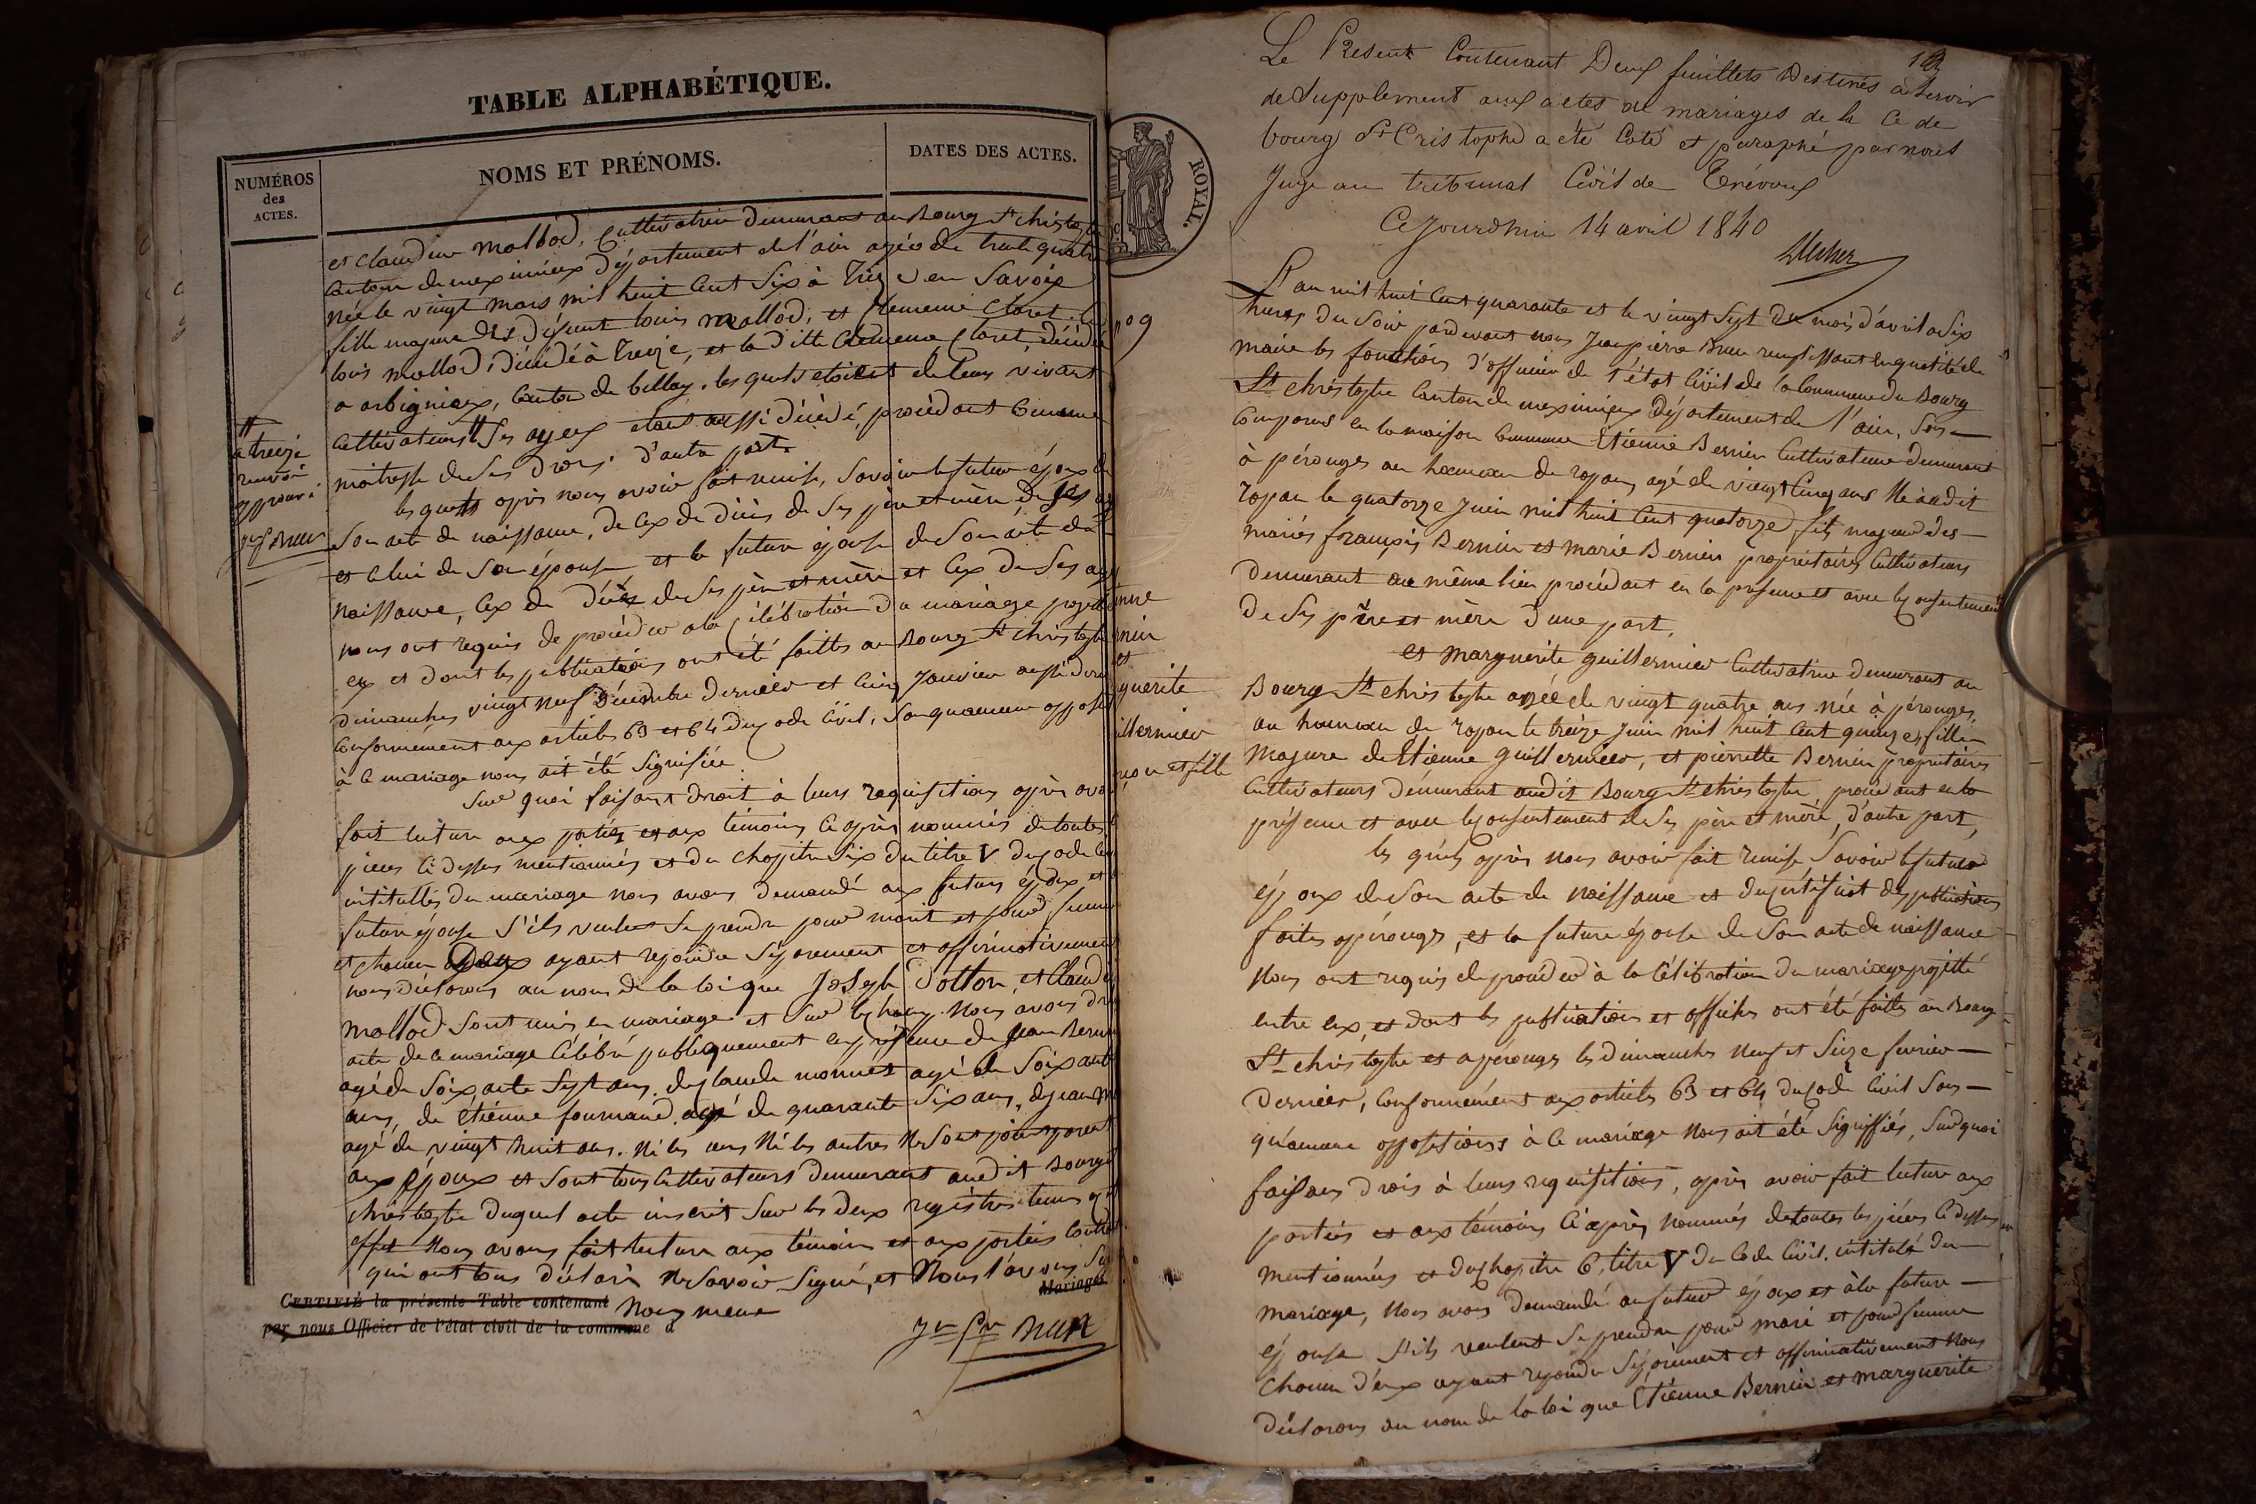 TABLE ALPHABÉTIQUE.
NUMÉROS
des
ACTES.
NOMS ET PRÉNOMS.
DATES DES ACTES.
et claudine mollod, Cultivatrice demeurant au Bourg St christophe
Canton de meximieux département de l'ain agée de trente quatre
née le vingt mars mil huit Cent Six à en Savoie
fille majeure des défunt louis mollod, et Clemence Claret. le
louis mollod, décédé à treize, et la ditte Clemence Claret, décédée
a arbignieux, Canton de belley. les quels etoient de leur vivant
Cultivateurs // Ses ayeux etant aussi décédé, procédant Comme
maitresse de Ses droits. d'autre part.
// a treize
renvoi
approuvé
les quels après nous avoir fait remise, Savoir le future époux de
Son acte de naissance, de Cex de décès de Ses père et mère de Ses
et Celui de Son épouse et la future épouse de Son acte de
Naissance, Cex de décès de Ses père et mère et Cex de Ses
nous ont requis de procéder a la Célébration du mariage projetté
ex et dont les publications ont été faittes au Bourg St christophe
dimanches vingt neuf décembre dernier et Cinq Janvier aussi
Conformément aux articles 63 et 64 du Code Civil, Sans quaucune
à Ce mariage nous ait été Signifiée
Sur quoi faisant droit à leurs requisitions après
fait lecture aux parties et aux témoins Ci après nommés de toutes
pièces Ci dessus mentionnés et du chapitre Six du titre V du Code
intitullés du mariage nous avons demandé aux futurs époux et
future épouse S'ils veulent Se prendre pour marit et pour femme
et chacun deux ayant repondu Séparement et affirmativement
nous déclarons au nom de la loi que Joseph Dotton, et Claudine
mollod Sont unis en mariage et Sur le champ. Nous avons
acte de Ce mariage Célébré publiquement en présence de Jean
agé de Soixante Sept ans, de Claude monnet agé de Soixante
ans, de Etiénne fournand agé de quarante Six ans, de jean
agé de vingt huit ans. Ni les uns Ni les autres Ne Sont point parent
aux époux et Sont tous Cultivateurs demeurant audit Bourg
christophe duquel acte inscrit Sur les deux registres tenus
effet Nous avons fait lecture aux témoins et aux parties
qui ont tous déclaré Ne Savoir Signer, et Nous l'avons
CERTIFIÉ la présente Table contenant
Mariages
Nous meme
par nous Officier de l'état civil de la commune d
ROYAL.
n° 9
et
12
Le Présent Contenant Deux feuillets Destinés à Servir
de Supplément aux actes de mariages de la Ce de
bourg St Cristophe a été Coté et paraphé par nous
Juge au tribunal Civil de Trévoux
Cejourdhui 14 avril 1840
L'an mil huit Cent quarante et le vingt Sept du mois d'avril a Six
heures du Soir pardevant nous Jean pierre Brun remplissant en qualité de
maire les fonctions d'officier de l'état Civil de la Commune du Bourg
St christophe Canton de meximieux Département de l'ain, Sont
Comparus en la maison Commune Etiénne Bernin Cultivateur demeurant
à pérouges au hameau de rapan, agé de vingt Cinq ans Né audit
rapan le quatorze Juin mil huit Cent quatorze, fils majeur des
mariés françois Bernin et marie Bernin propriétaires Cultivateurs
demeurant au même lieu procédant en la présence et avec le Consentement
de Ses père et mère d'une part,
et marguerite guillermier Cultivatrice demeurant au
Bourg St christophe agée de vingt quatre ans née à pérouges
au hameau de rapan le treize Juin mil huit Cent quinze, fille
majeure de Etiénne guillermier, et pierrette Bernin propriétaires
Cultivateurs démeurant audit Bourg St christophe, procédant en la
présence et avec le Consentement de Ses père et mère, d'autre part,
les quels après Nous avoir fait remise Savoir le future
époux de Son acte de naissance et du Certificat des publications
faites a pérouges, et la future épouse de Son acte de naissance
Nous ont requis de procéder à la Célébration du mariage projetté
entre ex, et dont les publications et affiches ont été faittes au Bourg
St christophe et a pérouges les dimanches Neuf et Seize fevrier
dernier, Conformément aux articles 63 et 64 du Code Civil Sans
qu'aucune oppositions à Ce mariage Nous ait été Signiffiés, Sur quoi
faisans droit à leurs requisitions, après avoir fait lecture aux
parties et aux témoins Ci après Nommés de toutes les pièces Ci dessus
mentionnés et du Chapitre 6, titre V du Code Civil. intitulé du
mariage, Nous avons demandé au futur époux et à la future
épouse S'ils veulent Se prendre pour mari et pour femme
Chacun d'eux ayant repondu Séparement et affirmativement Nous
Déclarons au nom de la loi que Etiénne Bernin et marguerite